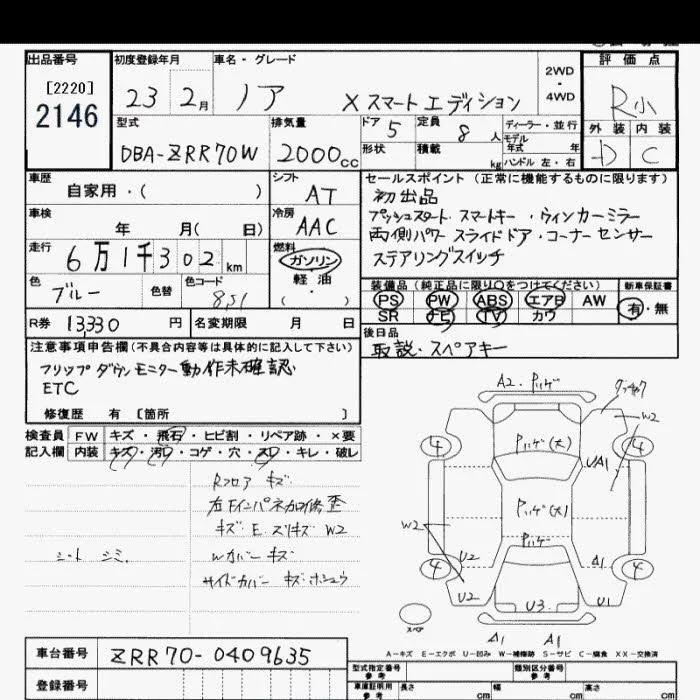 出品番号
[2220]
2146
初度登録年月
23 2月
車名・グレード
ノア X スマートエディション
2WD
・
4WD
評価点
R小
外装 内装
D C
型式
DBA-ZRR70W
排気量
2000cc
ドア 5
定員 8人
ディーラー・並行
モデル年式 年
形状
積載 kg
ハンドル 左・右
車歴
自家用・( )
シフト
AT
車検
年 月( 日)
冷房
AAC
走行
6万1千302km
燃料
ガソリン
軽油
( ・ )
色
ブルー
色替
色コード
8S1
R券 13,330 円
名変期限 月 日
セールスポイント (正常に機能するものに限ります)
初出品
プッシュスタート・スマートキー・ウィンカーミラー
両側パワースライドドア・コーナーセンサー
ステアリングスイッチ
装備品 (純正品に限り○をつけてください)
新車保証書
PS PW ABS エアB AW
SR ナビ TV カワ
有・無
後日品
取説・スペアキー
注意事項申告欄(不具合内容等は具体的に記入して下さい)
フリップダウンモニター動作未確認
ETC
修復歴 有 [箇所 ]
検査員 FW キズ・飛石・ヒビ割・リペア跡・×要
記入欄 内装 キズ・汚レ・コゲ・穴・スレ・キレ・破レ
Rフロア キズ
左Fインパネ加修歪
キズ E スリキズ W2
シート シミ
Wカバー キズ
サイドカバー キズ ホシュウ
A2・Pハゲ
W2
4
4
Pハゲ(大)
UA1
Pハゲ(大)
W2
Pハゲ
4
U2
A1
4
U2
U3
U1
スペア
A1 A1
A-キズ E-エクボ U-凹み W-補修跡 S-サビ C-腐食 XX-交換済
車台番号 ZRR70-0409635
型式指定番号
参考
類別区分番号
参考
登録番号
車庫証明用
参考
長さ cm
幅 cm
高さ cm